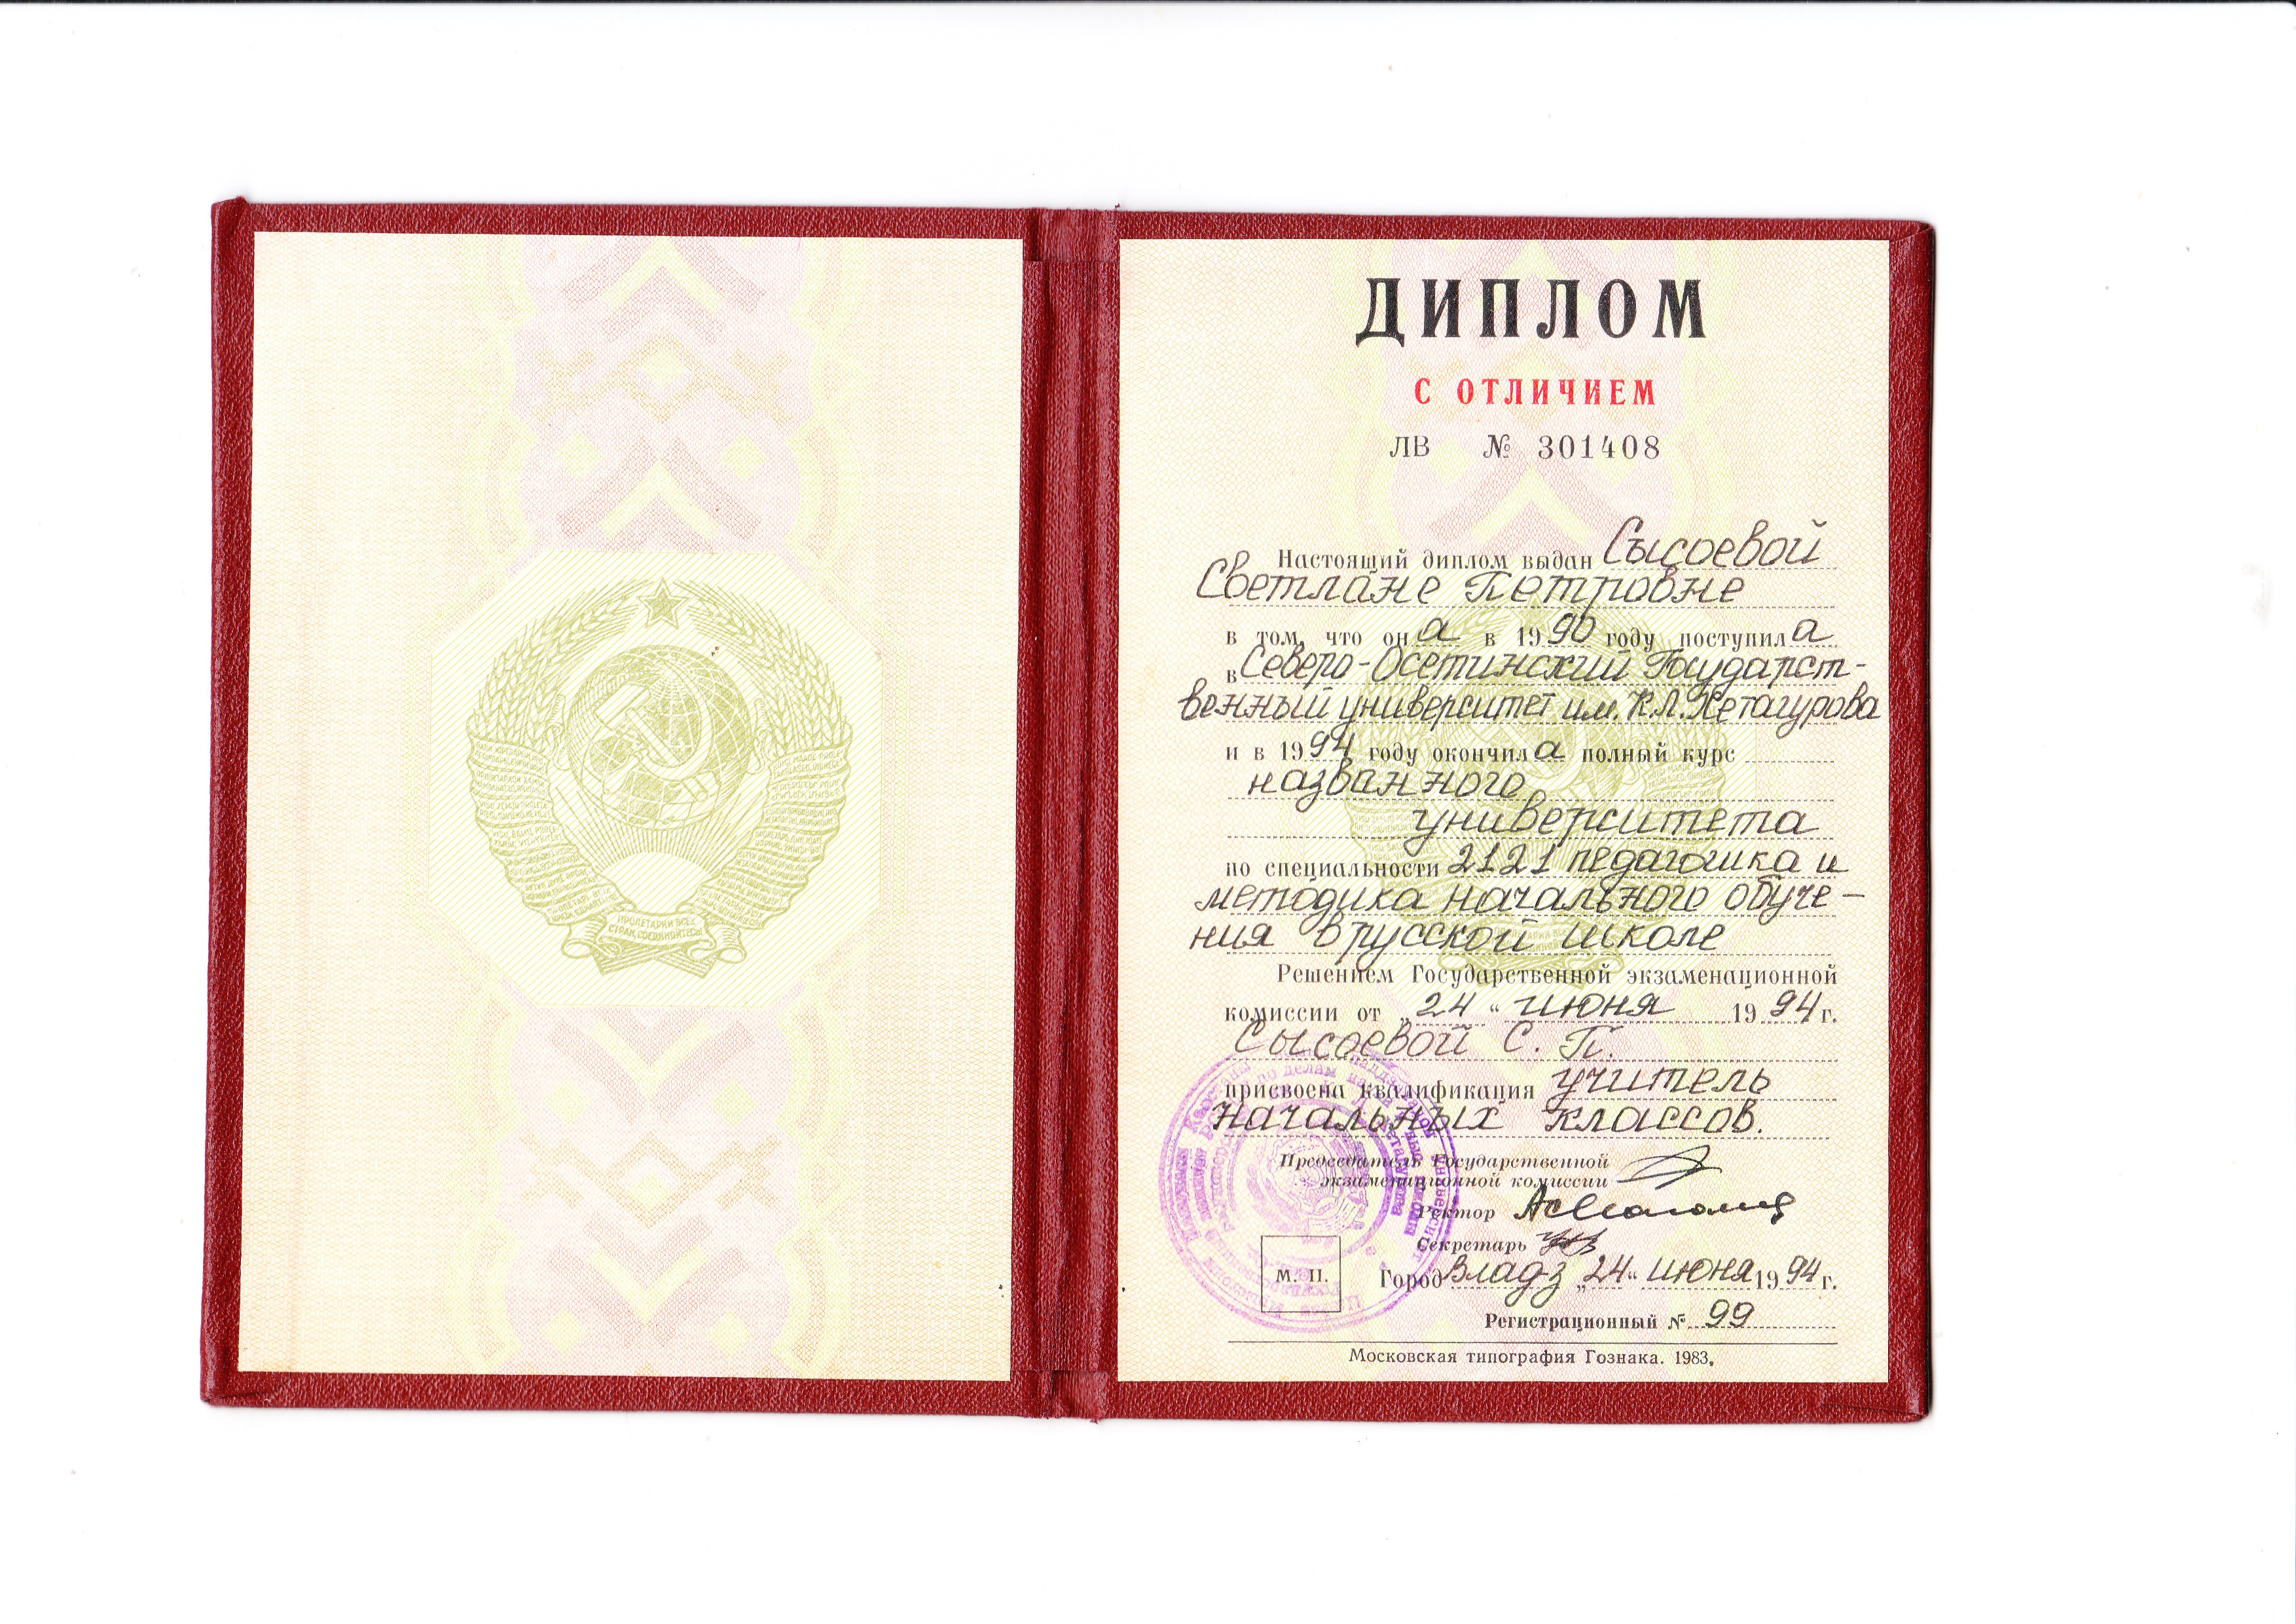 ПРОЛЕТАРИИ ВСЕХ
СТРАН, СОЕДИНЯЙТЕСЬ!
ДИПЛОМ
С ОТЛИЧИЕМ
ЛВ № 301408
Настоящий диплом выдан Сысоевой
Светлане Петровне
в том, что она в 1990 году поступила
в Северо-Осетинский Государст-
венный университет им. К.Л. Хетагурова
и в 1994 году окончила полный курс
названного
университета
по специальности 2121 педагогика и
методика начального обуче-
ния в русской школе
Решением Государственной экзаменационной
комиссии от „24“ июня 1994 г.
Сысоевой С. П.
присвоена квалификация учитель
начальных классов.
Председатель Государственной
экзаменационной комиссии
Ректор
Секретарь
М. П.
Город Владз „24“ июня 1994 г.
Регистрационный № 99
Московская типография Гознака. 1983.